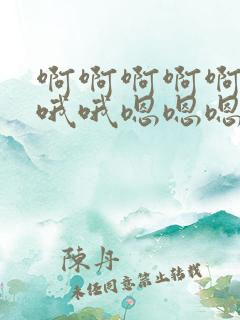 啊啊啊啊啊
哦哦嗯嗯嗯
陳丹
未经同意禁止转载